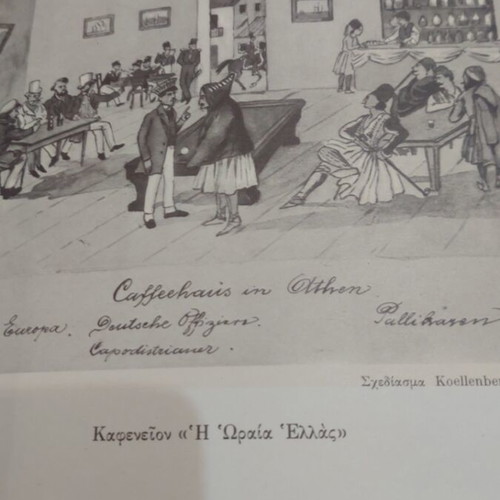 Caffeehaus in Athen
Europa. Deutsche Offiziere. Pallikaren
Capodistrianer.
Σχεδίασμα
Καφενεῖον «Ἡ Ὡραία Ἑλλὰς»